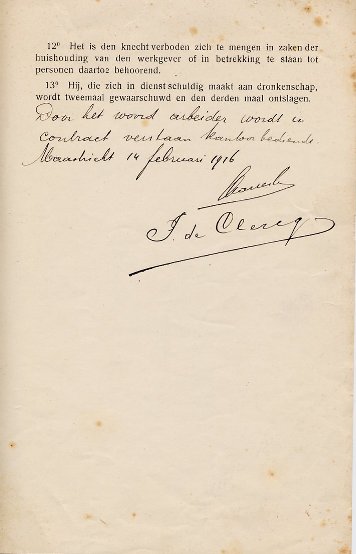 12º Het is den knecht verboden zich te mengen in zaken der
huishouding van den werkgever of in betrekking te staan tot
personen daartoe behoorend.
13º Hij, die zich in dienst schuldig maakt aan dronkenschap,
wordt tweemaal gewaarschuwd en den derden maal ontslagen.
Door het woord arbeider wordt in
contract verstaan kantoorbediende
Maastricht 14 februari 1916
J. de Clercq